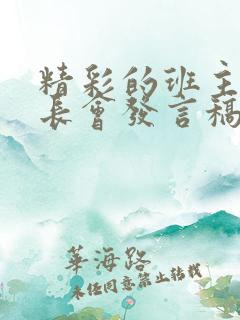 精彩的班主
長會發言稿
華海路
未经同意禁止转载